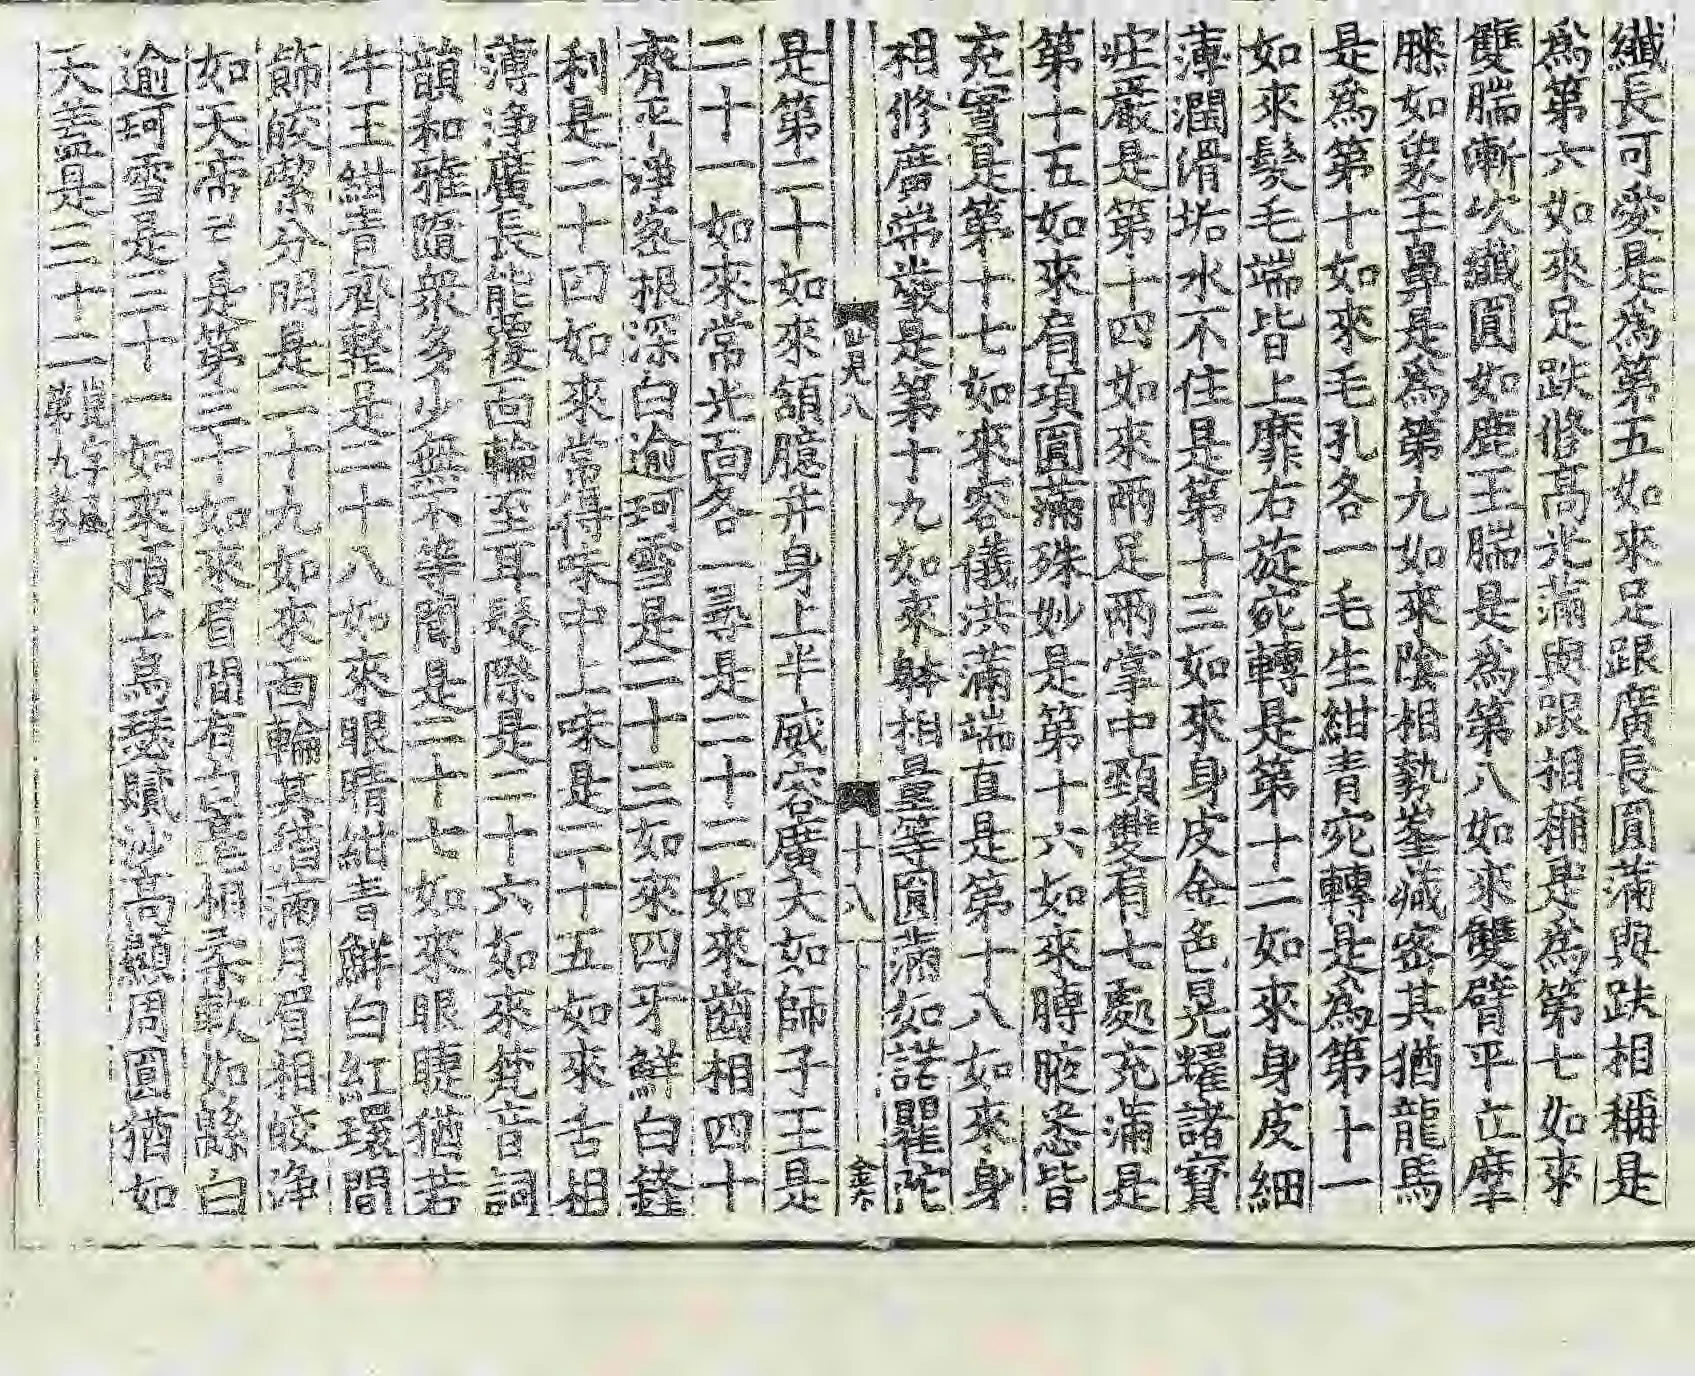 纖長可愛是爲第五如來足跟廣長圓滿與趺相稱是
爲第六如來足趺修高光滿與跟相稱是爲第七如來
雙腨漸次纖圓如鹿王腨是爲第八如來雙臂平立摩
膝如象王鼻是爲第九如來陰相勢峯藏密其猶龍馬
是爲第十如來毛孔各一毛生紺青宛轉是爲第十一
如來髮毛端皆上靡右旋宛轉是第十二如來身皮細
薄潤滑垢水不住是第十三如來身皮金色晃耀諸寶
莊嚴是第十四如來兩足兩掌中頸雙肩七處充滿是
第十五如來肩項圓滿殊妙是第十六如來膊腋悉皆
充實是第十七如來容儀洪滿端直是第十八如來身
相修廣端嚴是第十九如來體相量等圓滿如諾瞿陀
見八 十八
是第二十如來頷臆幷身上半威容廣大如師子王是
二十一如來常光面各一尋是二十二如來齒相四十
齊平淨密根深白逾珂雪是二十三如來四牙鮮白鋒
利是二十四如來常得味中上味是二十五如來舌相
薄淨廣長能覆面輪至耳髮際是二十六如來梵音詞
韻和雅隨衆多少無不等聞是二十七如來眼睫猶若
牛王紺青齊整是二十八如來眼睛紺青鮮白紅環間
飾皎潔分明是二十九如來面輪其猶滿月眉相皎淨
如天帝弓是第三十如來眉間有白毫相柔軟如緜白
逾珂雪是三十一如來頂上烏瑟膩沙高顯周圓猶如
天蓋是三十二
第九卷